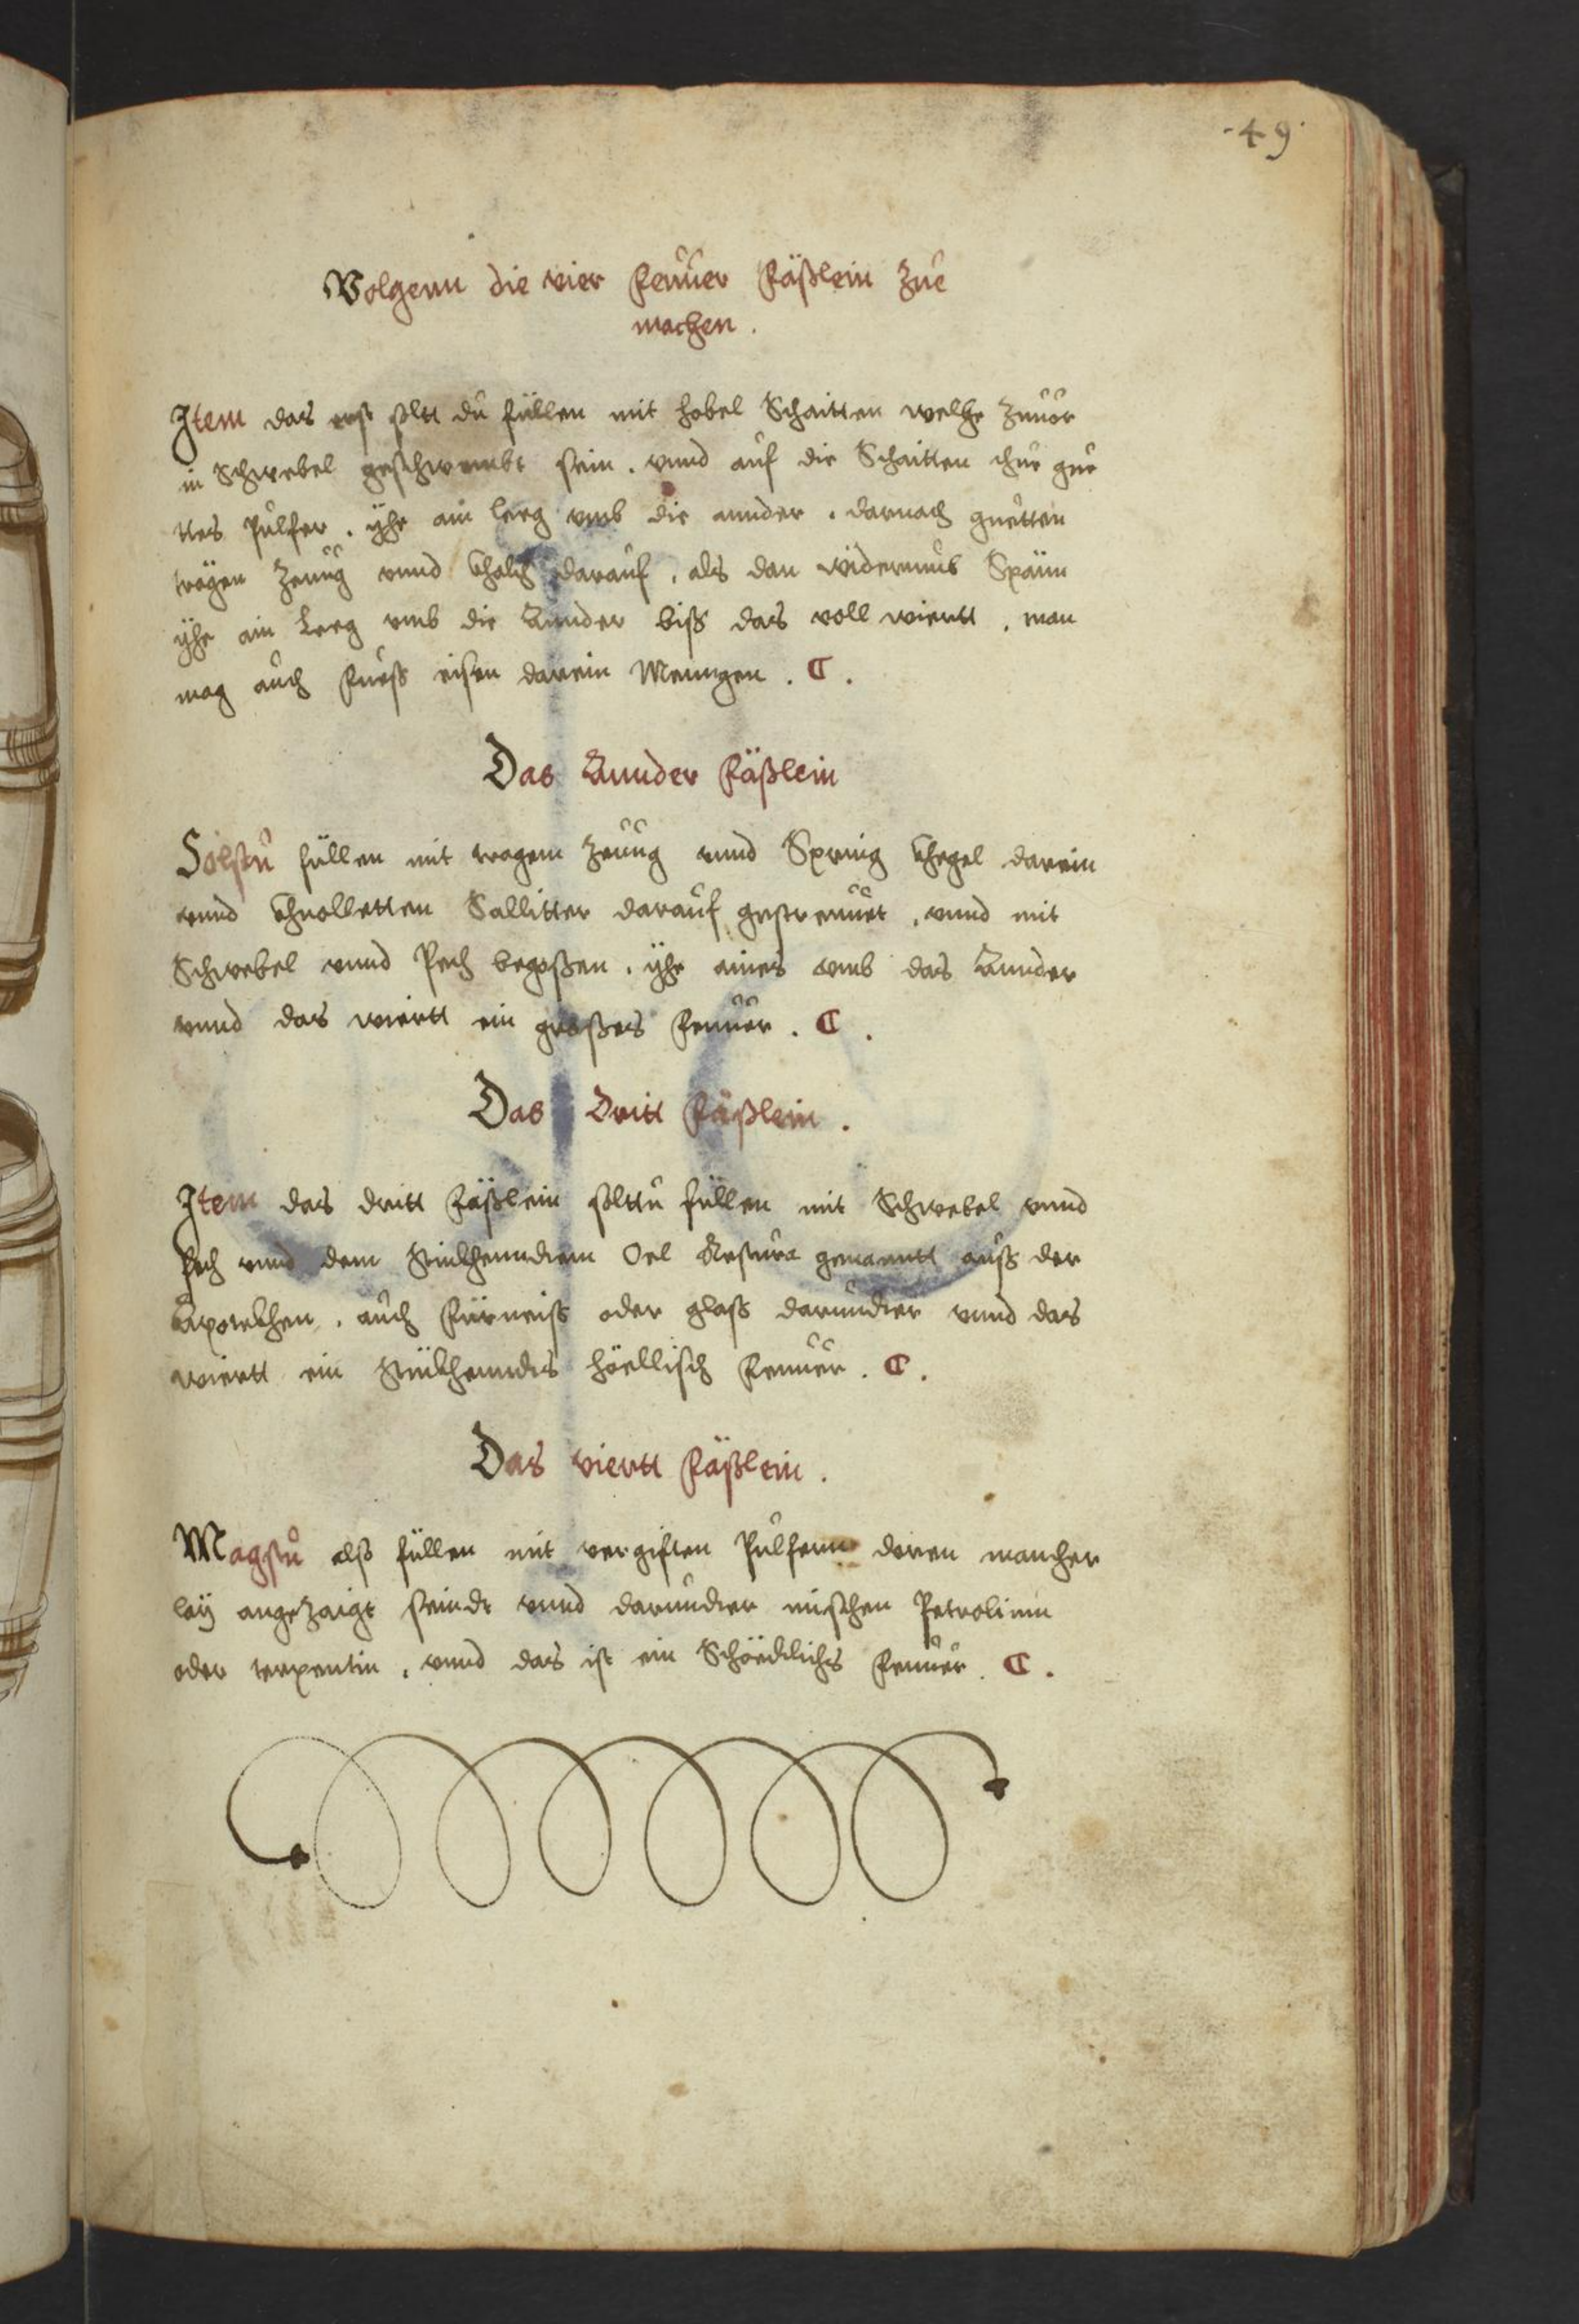 ·49·
Volgenn die vier Feuuer Fäßlein Zue
machen.
Item das erst soltt du füllen mit hobel Schaitten welche Zuuor
in Schwebel geschwembt sein. vnnd auf die Schaitten thue gue
ttes Pulfer. yhe ain leeg vmb die annder. darnach guetten
trögen Zeuug vnnd khalch darauf, als dan widerumb Spänn
yhe ain Leeg vmb die Annder biß das voll wiertt. man
mag auch Fueß eisen darein Menngen.
Das Annder Fäßlein
Solstu füllen mit tragem Zeuug vnnd Spring khegel darein
vnnd khnolletten Sallitter darauf gestreuuet, vnnd mit
Schwebel vnnd Pech begoßen. yhe aines vmb das Annder
vnnd das wiertt ein großes Feuuer.
Das Dritt Fäßlein.
Item das dritt Fäßlein solttu füllen mit Schwebel vnnd
Pech vnnd dem stinkhenndem Oel genanntt auß der
Apotekhen, auch Fürneiß oder glaß darundter vnnd das
wiertt ein stinkhenndes höellisch Feuuer.
Das viertt Fäßlein.
Magstu alß füllen mit vergiften Pulfern deren mancher
leÿ angeZaigt seindt vnnd darundter mischen Petrolium
oder terpentin, vnnd das ist ein Schöedlichs Feuuer.